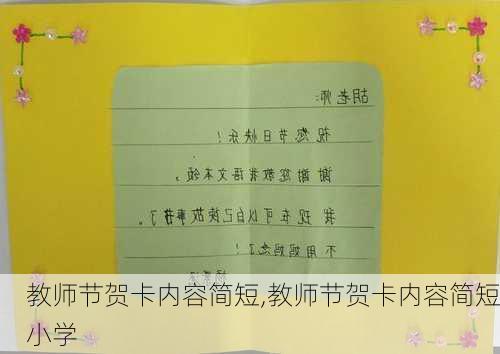 胡老师:
祝您节日快乐!
谢谢您教我语文本领,
我现在可以自己读故事书了。
不用妈妈念了!
教师节贺卡内容简短,教师节贺卡内容简短
小学